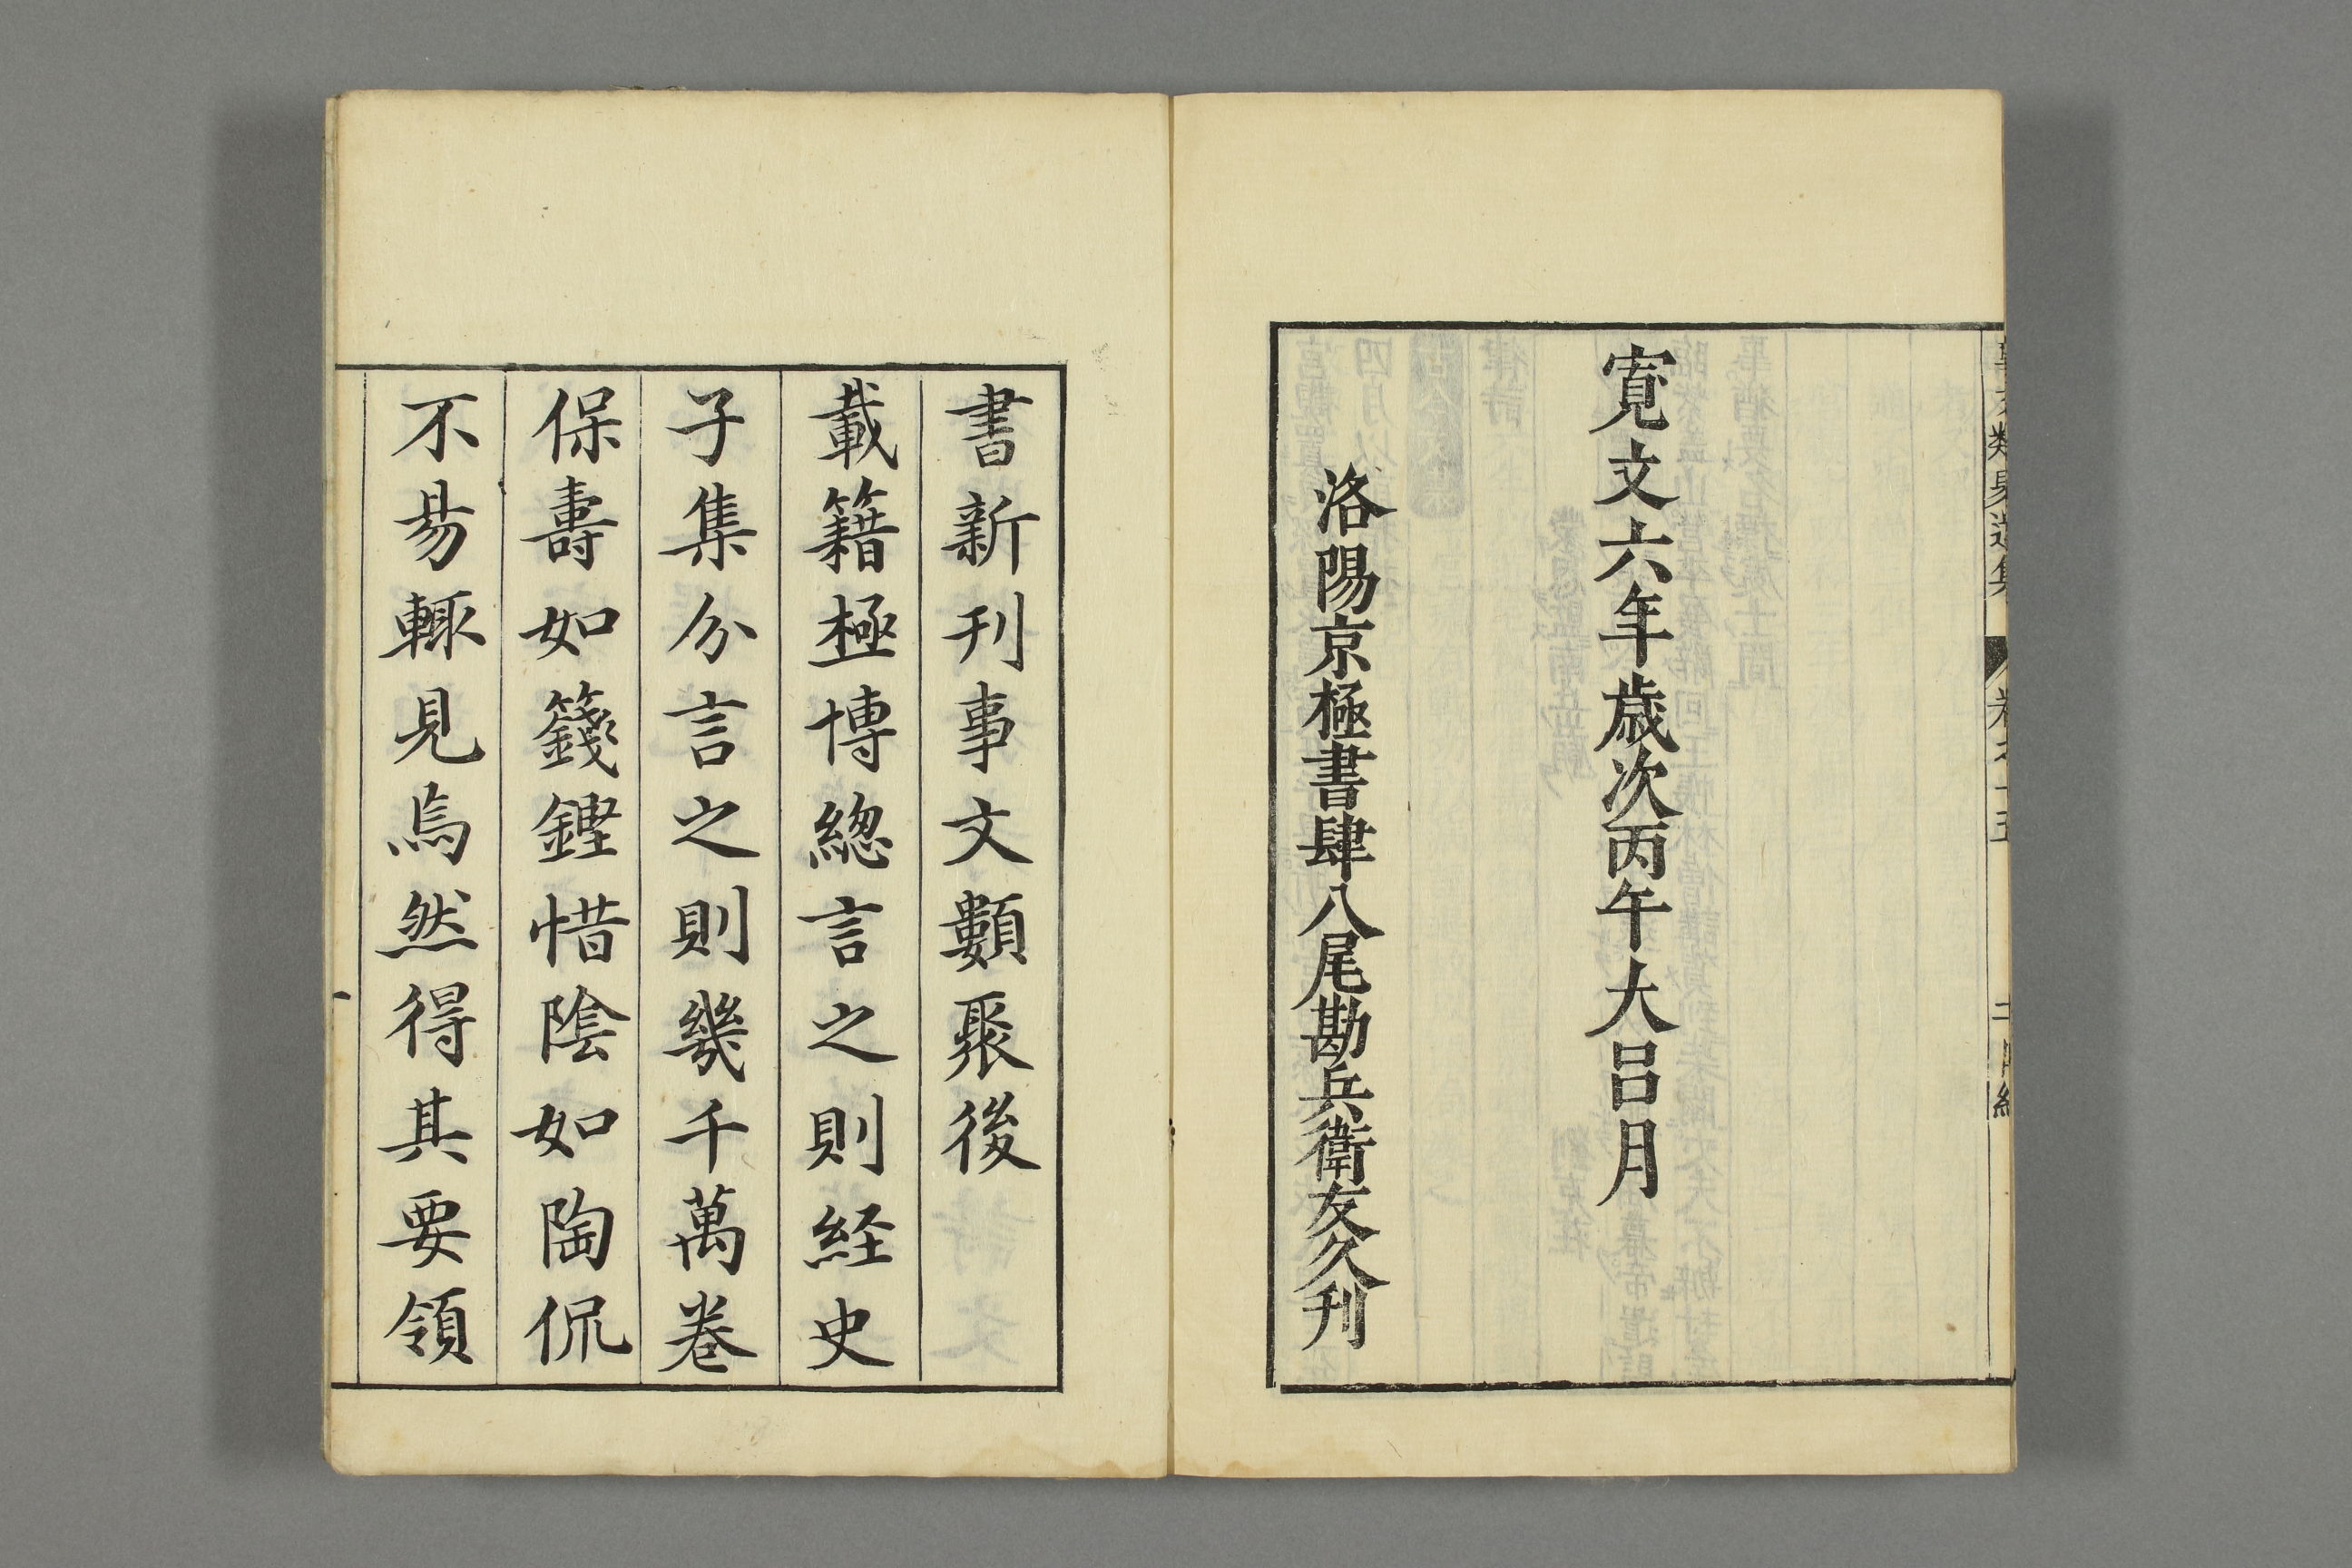 寛文六年歳次丙午大呂月
洛陽京極書肆八尾勘兵衛友久刊
書新刊事文類聚後
載籍極博総言之則経史
子集分言之則幾千萬巻
保壽如籛鏗惜陰如陶侃
不易輙見焉然得其要領